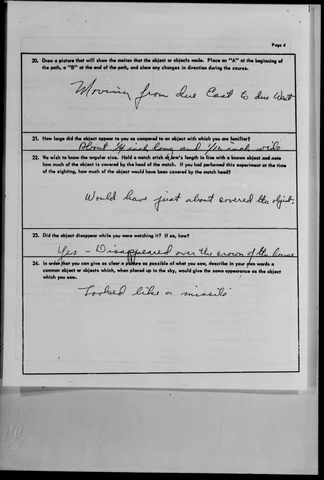 Page 4
20. Draw a picture that will show the motion that the object or objects made. Place an "A" at the beginning
of the path, a "B" at the end of the path, and show any changes in direction during the course.
Moving from due East to due West
21. How large did the object appear to you as compared to an object with which you are familiar?
About 1/4 inch long and 1/16 inch wide
22. We wish to know the angular size. Hold a match stick at arm's length in line with a known object and note
how much of the object is covered by the head of the match. If you had performed this experiment at the time
of the sighting, how much of the object would have been covered by the match head?
Would have just about covered the object.
23. Did the object disappear while you were watching it? If so, how?
Yes - Disappeared over the crown of the house
24. In order that you can give as clear a picture as possible of what you saw, describe in your own words a
common object or objects which, when placed up in the sky, would give the same appearance as the object
which you saw.
Looked like a missile